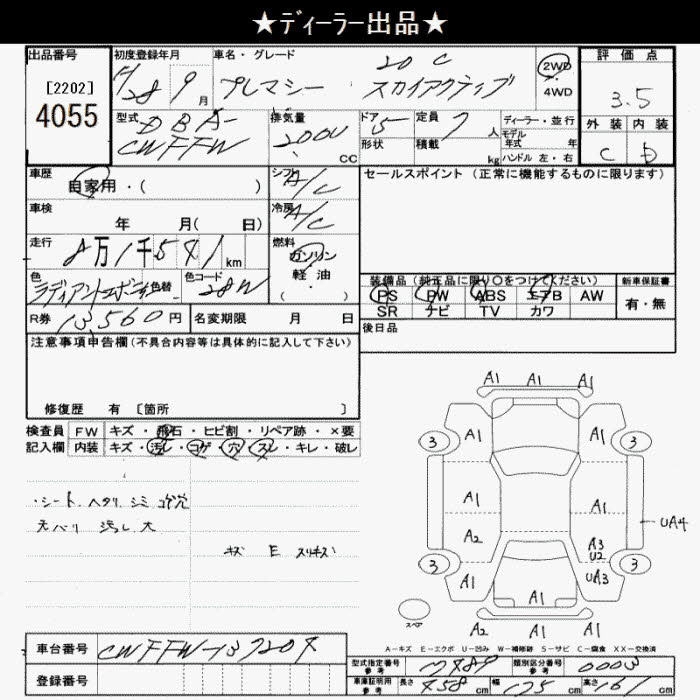 ★ディーラー出品★
出品番号
[2202]
4055
初度登録年月
H28 9 月
車名・グレード
20C
プレマシー スカイアクティブ
2WD
4WD
評価点
3.5
外装 内装
C D
型式
DBA-
CWFFW
排気量
2000
CC
ドア
5
形状
定員
7 人
積載
kg
ディーラー・並行
モデル
年式 年
ハンドル 左・右
車歴
自家用・( )
シフト
A/C
車検
年 月( 日)
冷房
A/C
走行
8万1千541 km
燃料
ガソリン
軽油
( ・ )
色
ラディアントエボニー
色替
色コード
28W
R券
13,560 円
名変期限 月 日
セールスポイント (正常に機能するものに限ります)
装備品 (純正品に限り○をつけてください)
PS PW ABS エアB AW
SR ナビ TV カワ
新車保証書
有・無
後日品
注意事項申告欄(不具合内容等は具体的に記入して下さい)
修復歴 有 [箇所 ]
検査員 FW キズ・飛石・ヒビ割・リペア跡・×要
記入欄 内装 キズ・汚レ・コゲ・穴・スレ・キレ・破レ
・シート ヘタリ シミ コゲ穴
天バリ 汚レ大
キズ E スリキズ
A1 A1 A1
3 A1 A1 3
A1 A1
UA4
A2 A3
U2
3 A1 UA3 3
A1
A2 A1 A1
スペア
A-キズ E-エクボ U-凹み W-補修跡 S-サビ C-腐食 XX-交換済
車台番号
CWFFW-13720
登録番号
型式指定番号
参考
類別区分番号
参考
0003
車庫証明用
参考
長さ 458 cm
幅 175 cm
高さ 161 cm